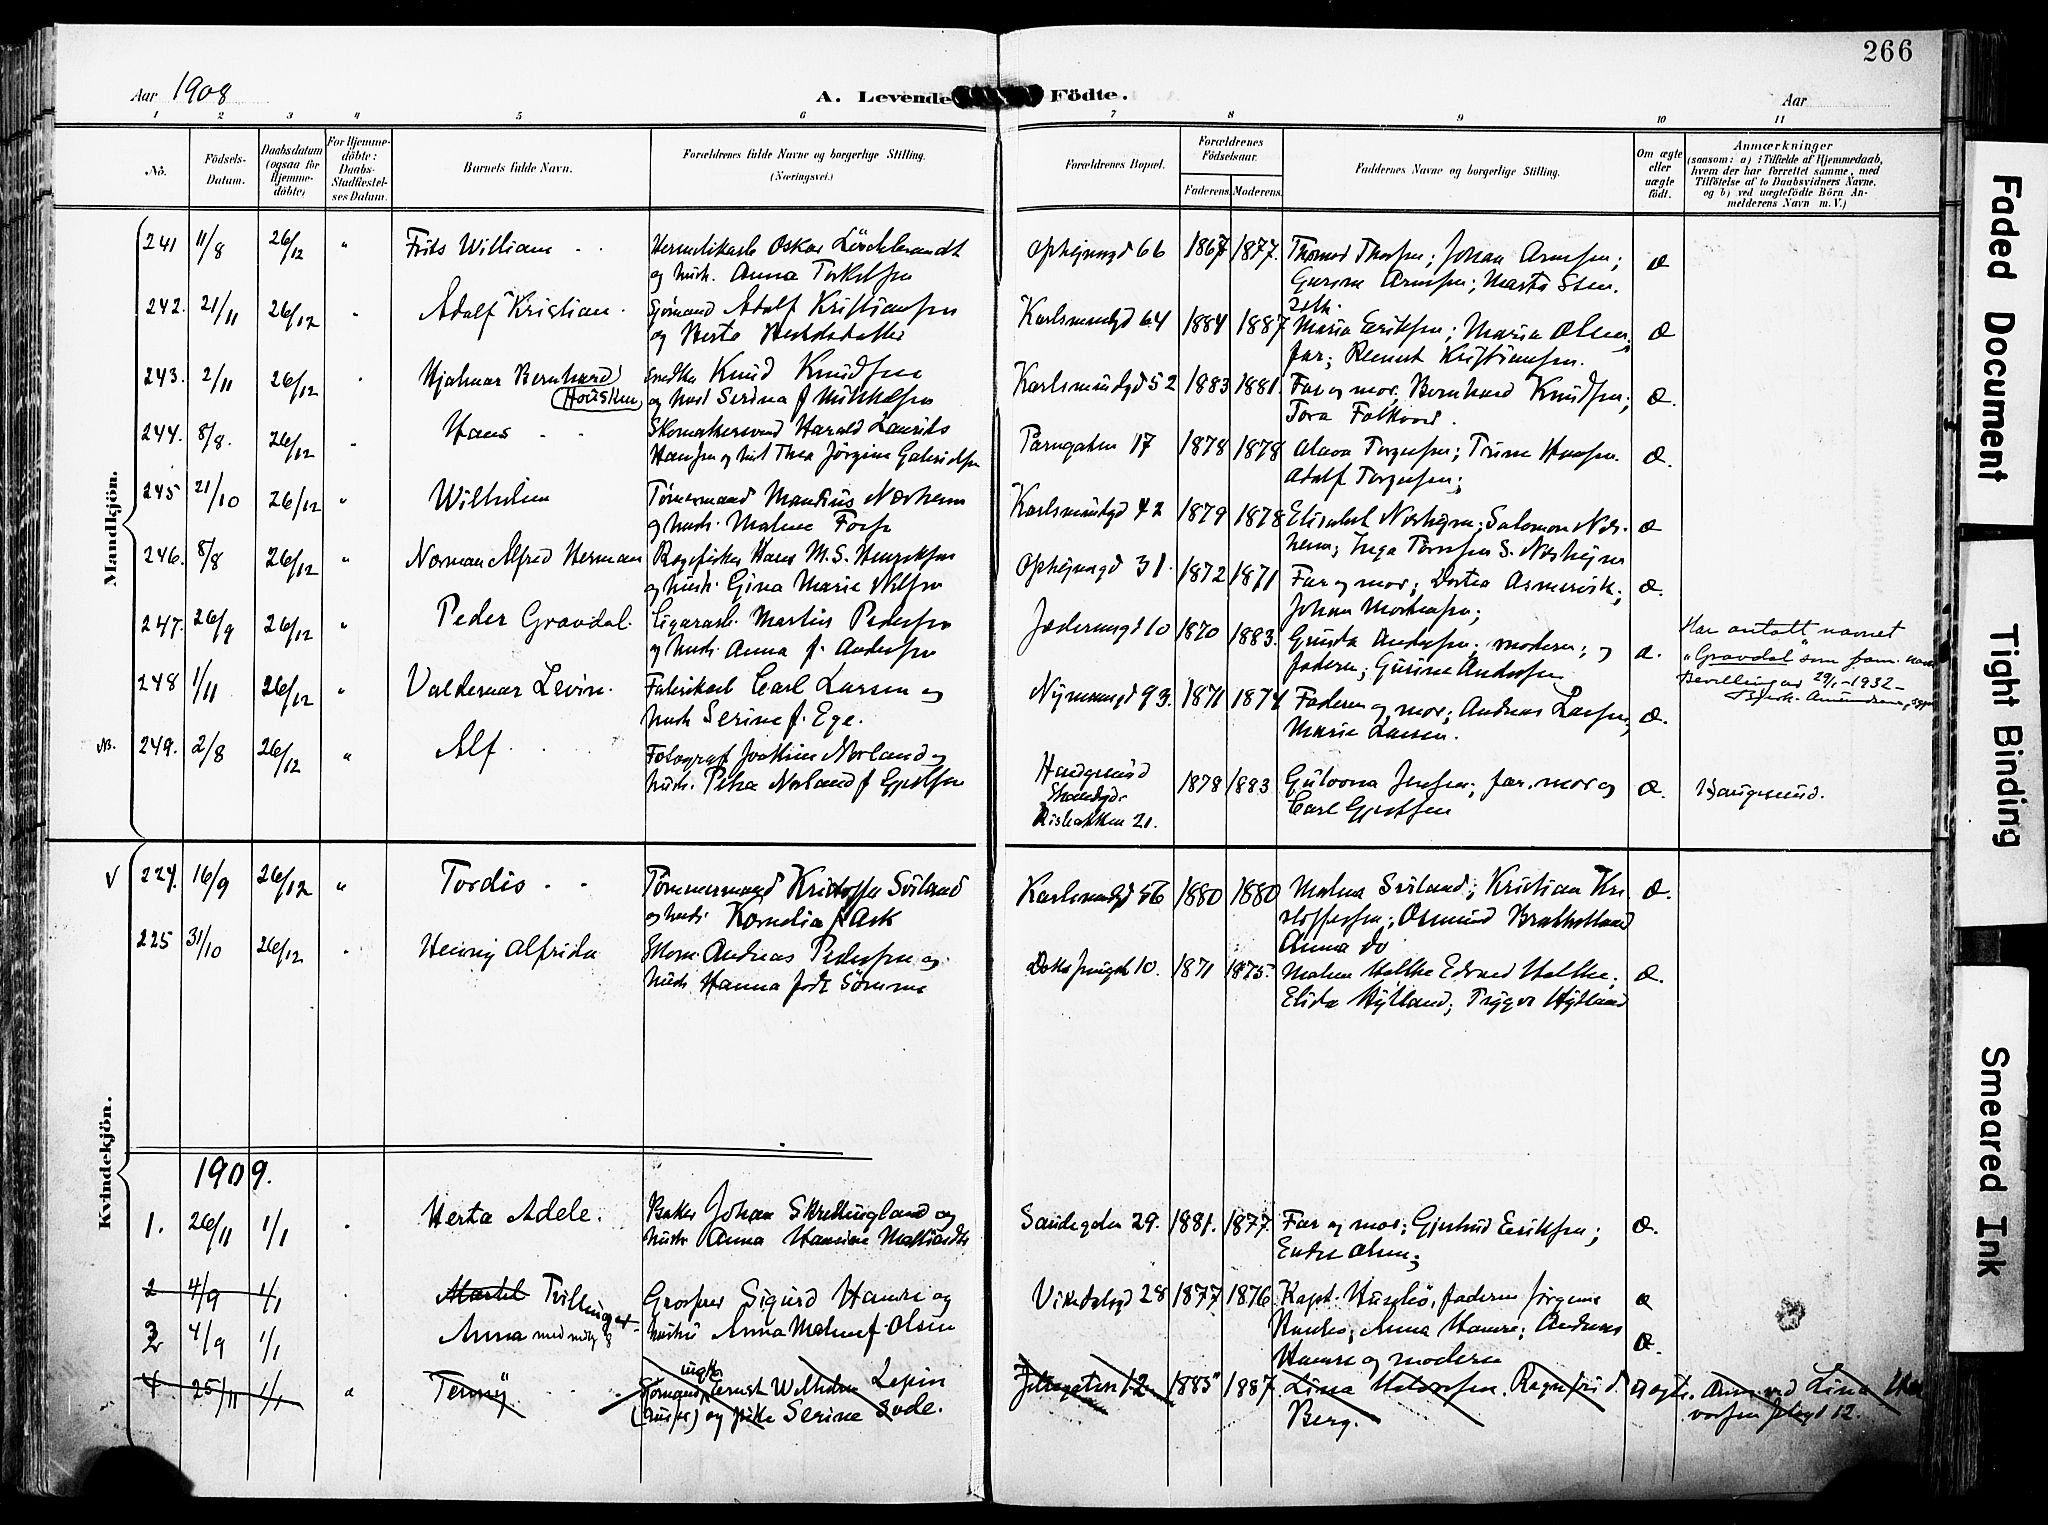 266
Aar 1908
A. Levende Födte.
Aar
1 2 3 4 5 6 7 8 9 10 11
No.
Födsels-
Datum.
Daabsdatum
(ogsaa for
Hjemme-
döbte)
For Hjemme-
döbte:
Daabs-
Stadfæstel-
ses Datum.
Barnets fulde Navn.
Forældrenes fulde Navne og borgerlige Stilling.
(Næringsvei.)
Forældrenes Bopæl.
Forældrenes
Födselsaar.
Faderens. Moderens.
Faddernes Navne og borgerlige Stilling.
Om ægte
eller
uægte
født.
Anmærkninger
(saasom: a) i Tilfælde af Hjemmedaab,
hvem der har forrettet samme, med
Tilföielse af to Daabsvidners Navne.
og b) ved uægtefödte Börn An-
melderens Navn m. V.)
Mandkjön.
241 11/8 26/12 " Frits William
og hustr. Anna Torkelsen
66 1867 1877. Thomas Thorsen; Johan Arnesen;
Gurine Arnesen; Marta Sten
seth. Æ
242. 21/11 26/12 " Adolf Kristian. Sjömand Adolf Kristiansen
og Berta
Karlsmindegd 64 1884 1887 Maria Eriksen; Maria Olsen;
far; Kristiansen. Æ
243. 2/11 26/12 " Hjalmar Bernhard
(Housken) Smed Knud Knudsen
og hust Serina f Mikkelsen
Karlsmindegd 52 1883 1881. Far og mor, Bernhard Knudsen;
Tora Falkvord. Æ.
244. 8/8. 26/12 " Hans Harald Laurits
Hansen og hust Thea Jörgine Gabrielsen
17 1878 1878 Torgersen; Trine Hansen.
Adolf Torgersen; Æ.
245 21/10 26/12 " Wilhelm Tømermand Mandius Nærheim
og hust. Malene
Karlsmindegd 42 1879 1878 Elisabet Næsheim; Salomon Næs-
heim; Inga S. Næsheim Æ
246. 8/8 26/12 " Norman Alfred Herman Hans M. S. Henriksen
og hust. Gina Marie Nilsen
31. 1872 1871 Far og mor; Dortea Asmervik;
Johan Mortensen; Æ.
247. 26/9 26/12 " Peder Gravdal. Cigararb. Martin Pedersen
og hust. Anna f. Andersen
Jæderengd 10 1870 1883. Andersen; moderen; og
faderen; Gurine Andersen Æ.
Har antatt navnet
"Gravdal" som fam. navn
Bevilling av 29/1-1932-
248 1/11 26/12 " Valdemar Levin. Fabrikarb Carl Larsen og
hust Serine f. Ege.
Nymansgd 93. 1871 1874 Faderen og mor; Andreas Larsen,
Marie Larsen. Æ.
NB. 249. 2/8 26/12 " Alf. Fotograf Joakim Norland og
hust. Petra Norland f Gjertsen
Haugesund
Strandgd.
Risbakken 21. 1878 1883 Gulovna Jensen; far, mor og
Carl Gjertsen Æ. Haugesund.
Kvindekjön.
V 224. 16/9 26/12 " Tordis Tömmermand Kristoffer Sviland
og hust. Kornelia f Ask
Karlsmindegd 56 1880 1880 Malena Sviland; Kristian Kri
stoffersen; Osmund Brathetland
Anna do Æ.
225 31/10 26/12 " Henny Alfrida Skom. Andreas Pedersen og
hust. Hanna født Sömme
10. 1871 1875. Malene Edvard
Elida Hytland; Trygve Hytland Æ.
1909.
1. 26/11 1/1 " Herta Adele. Baker Johan Skretingland og
hustr Anna Hansine
Sandegaden 29. 1881. 1877. Far og mor; Gjertrud Eriksen;
Endre Olsen; Æ.
2 4/9 1/1 Tvillinger Grosserer Sigurd Hamre og
hustru Anna Malene f. Olsen
Vikedalsgd 28 1877 1876 Kapt. Husebö, faderen Jörgine
Husebö; Anna Hamre; Andreas
Hamre og moderen Æ
3 4/9 1/1 Anna Æ.
4 25/11 1/1 " Tenny ugft
Sjömand Bernt Wilhelm
og pike Serine Sode.
Jelsagaten 12 1885 1887 Lina Halvorsen. Ragnfrid
Berg. Uægte. Anm ved Lina Hal
vorsen Jelsagd 12.
Faded Document
Tight Binding
Smeared Ink